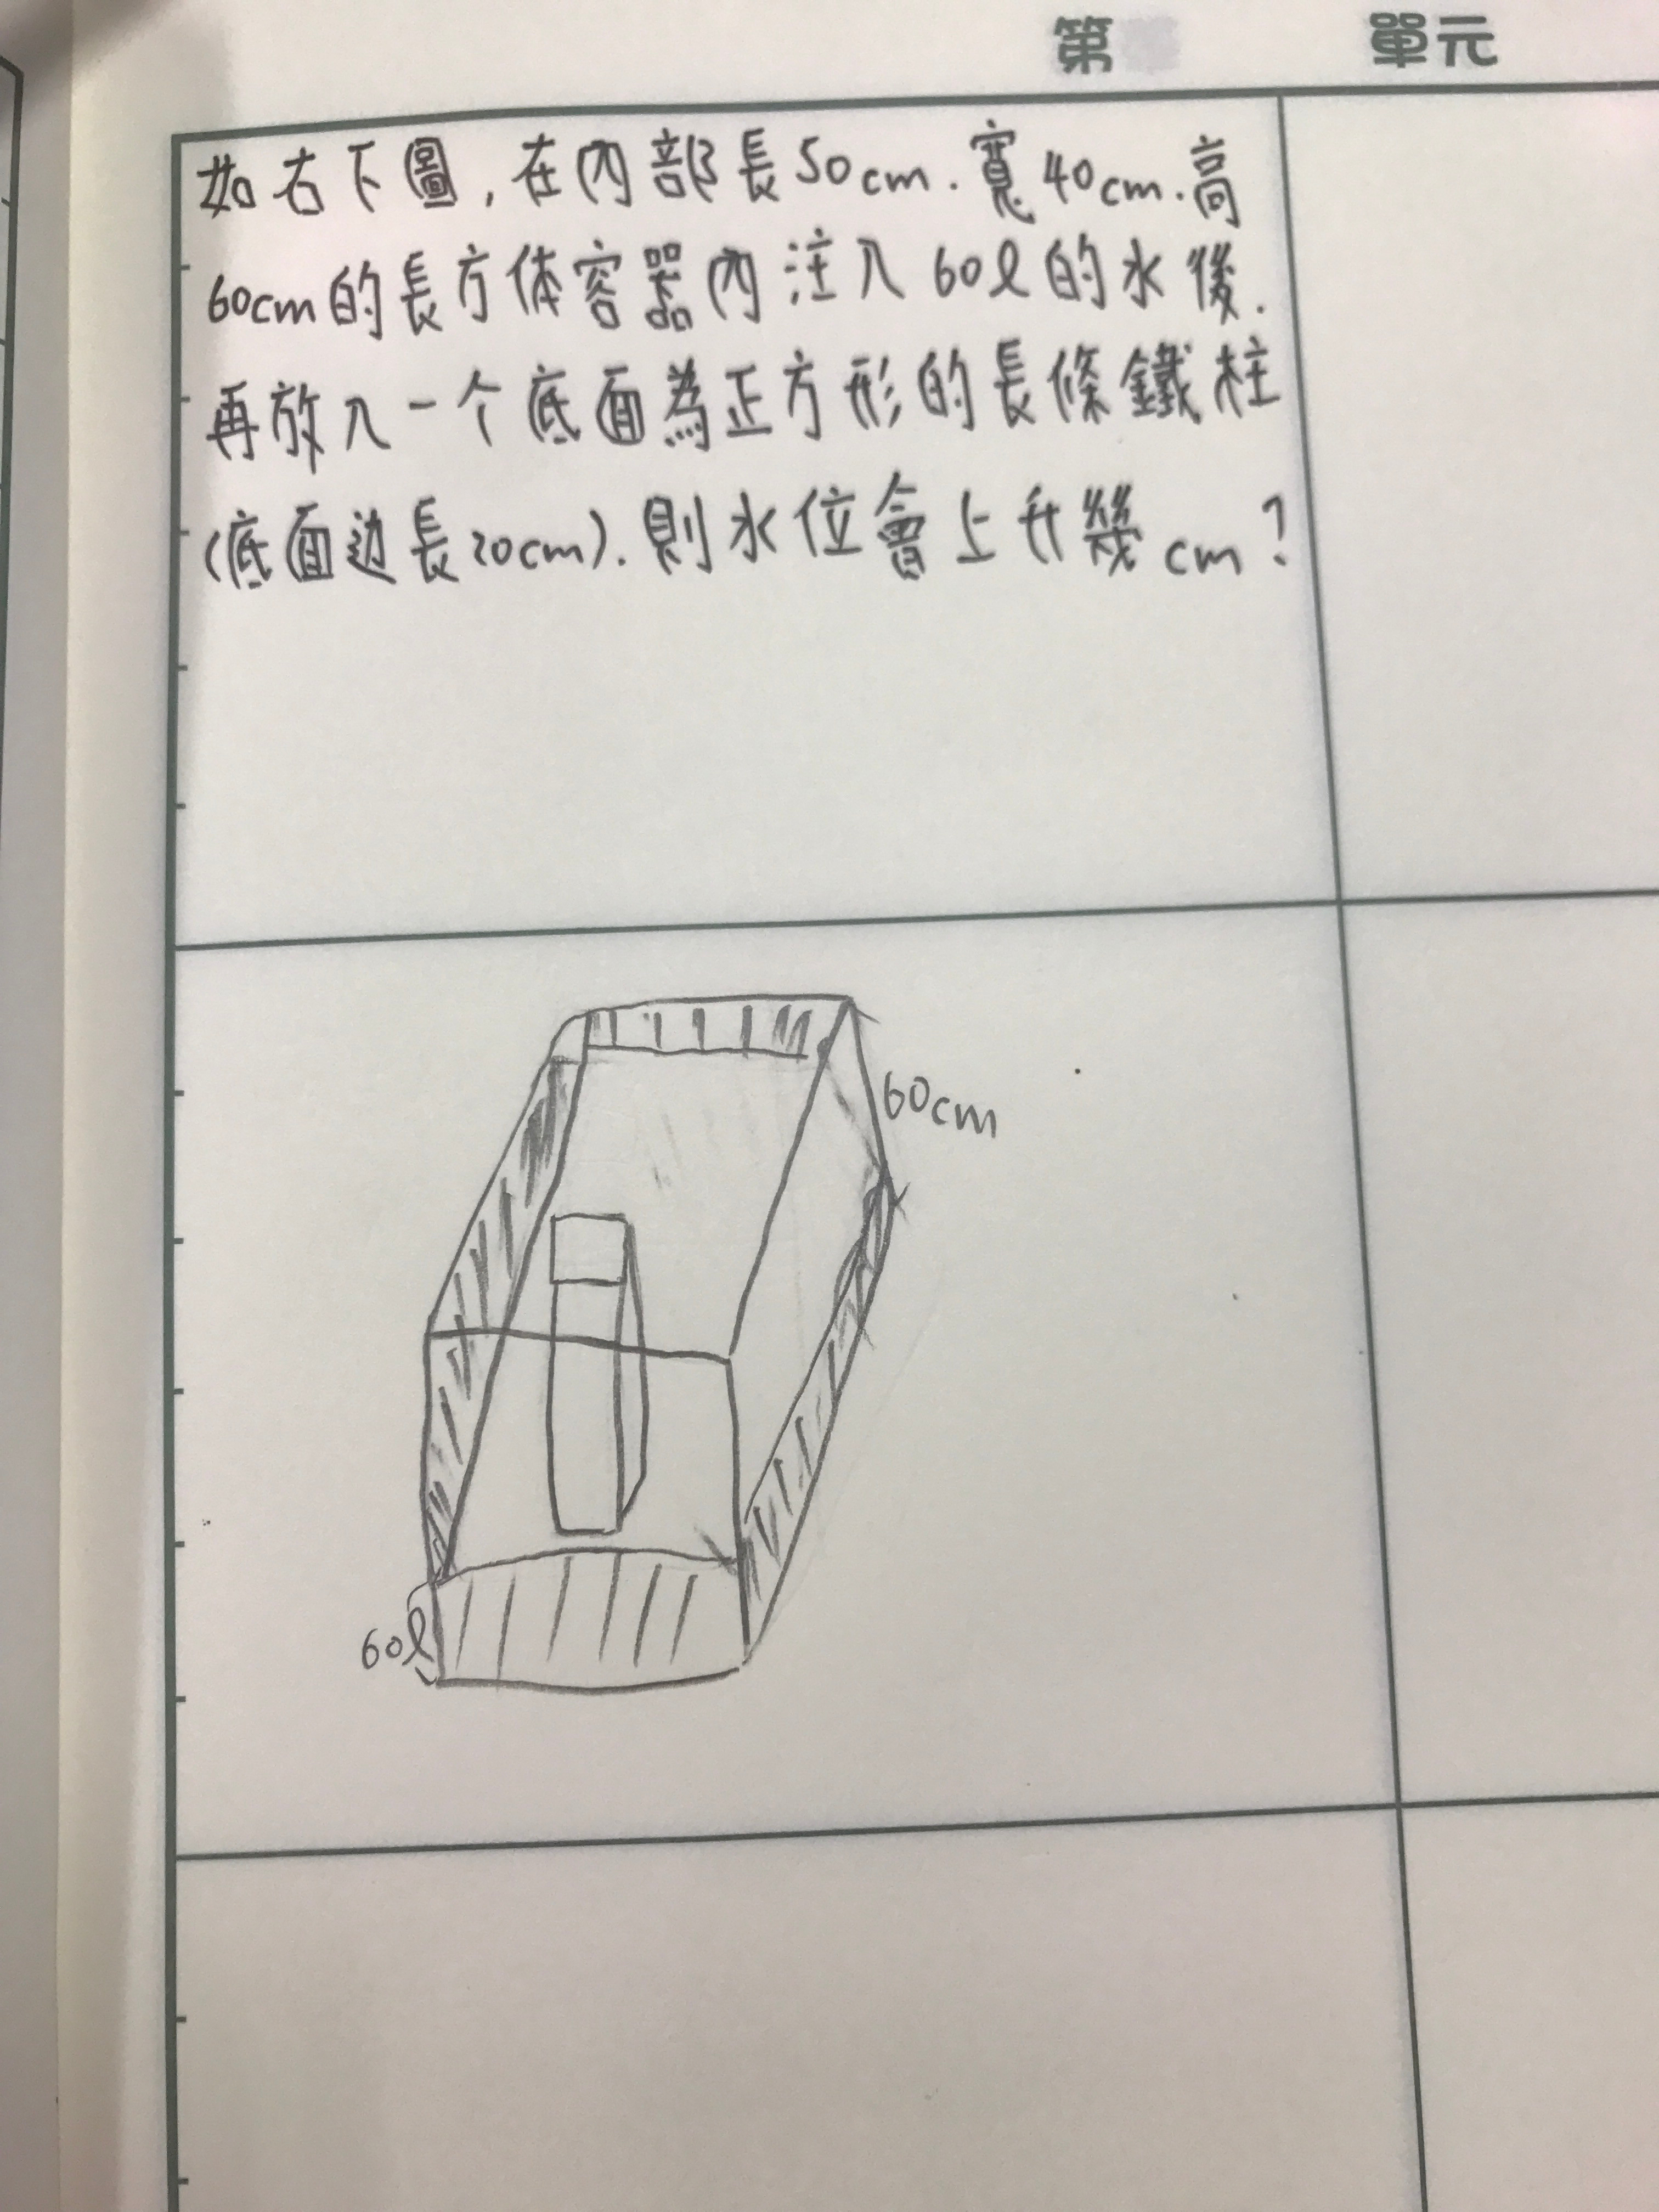 第 單元
如右下圖,在內部長50cm.寬40cm.高
60cm的長方体容器內注入60ℓ的水後.
再放入一个底面為正方形的長條鐵柱
(底面边長20cm).則水位會上升幾cm?
60cm
60ℓ